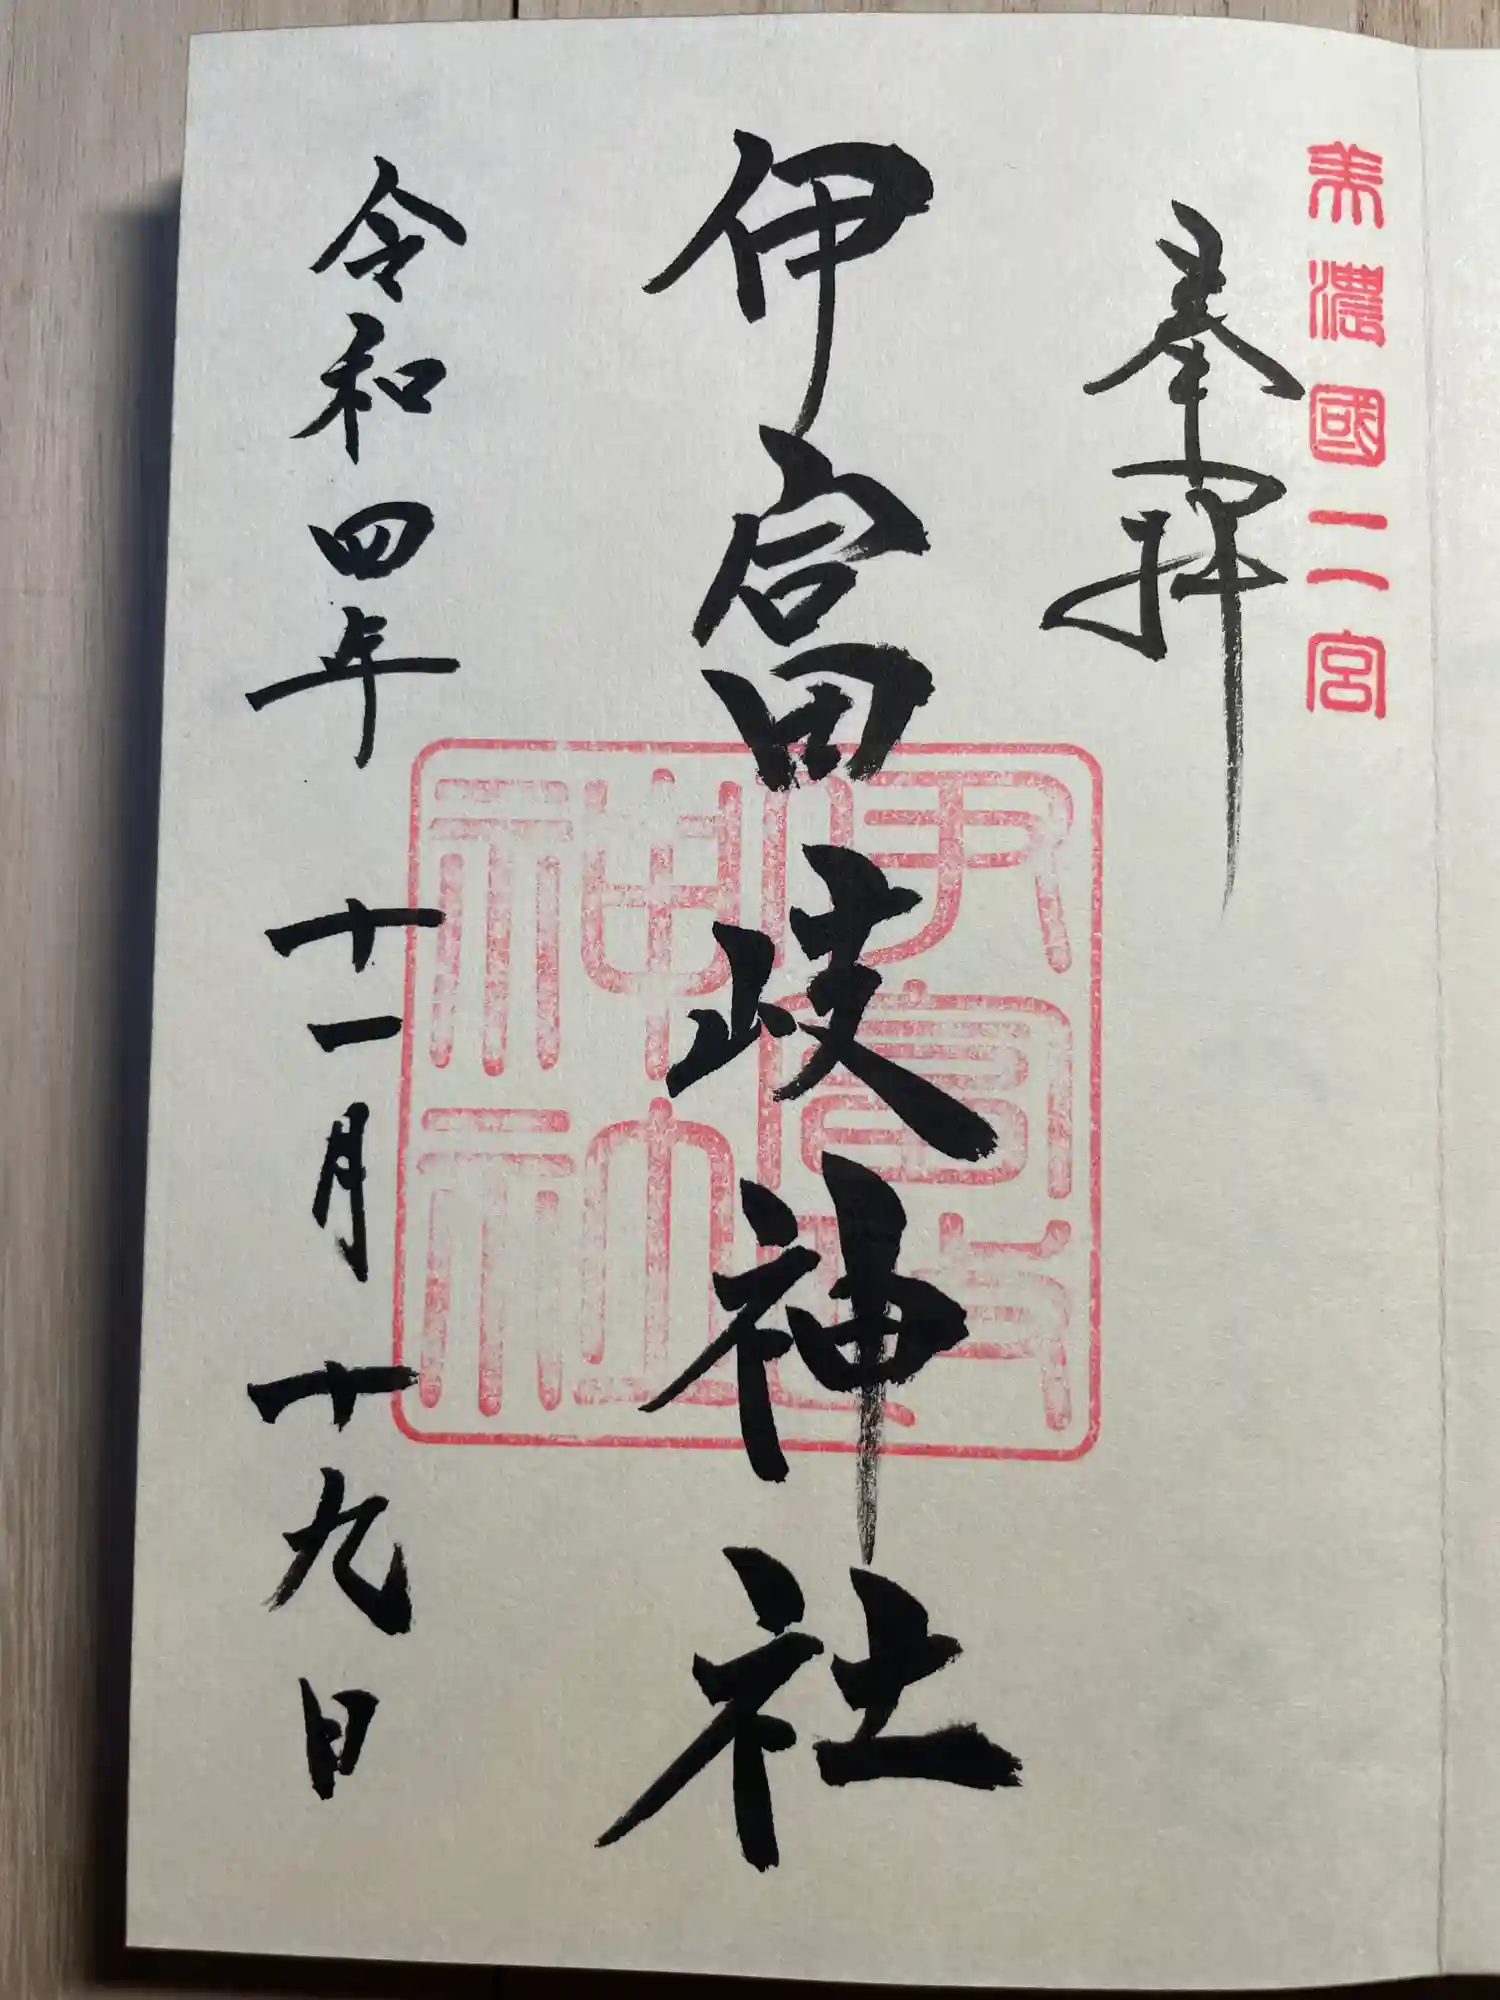 美濃國二宮
奉拝
伊富岐神社
令和四年十一月十九日
伊富
神社